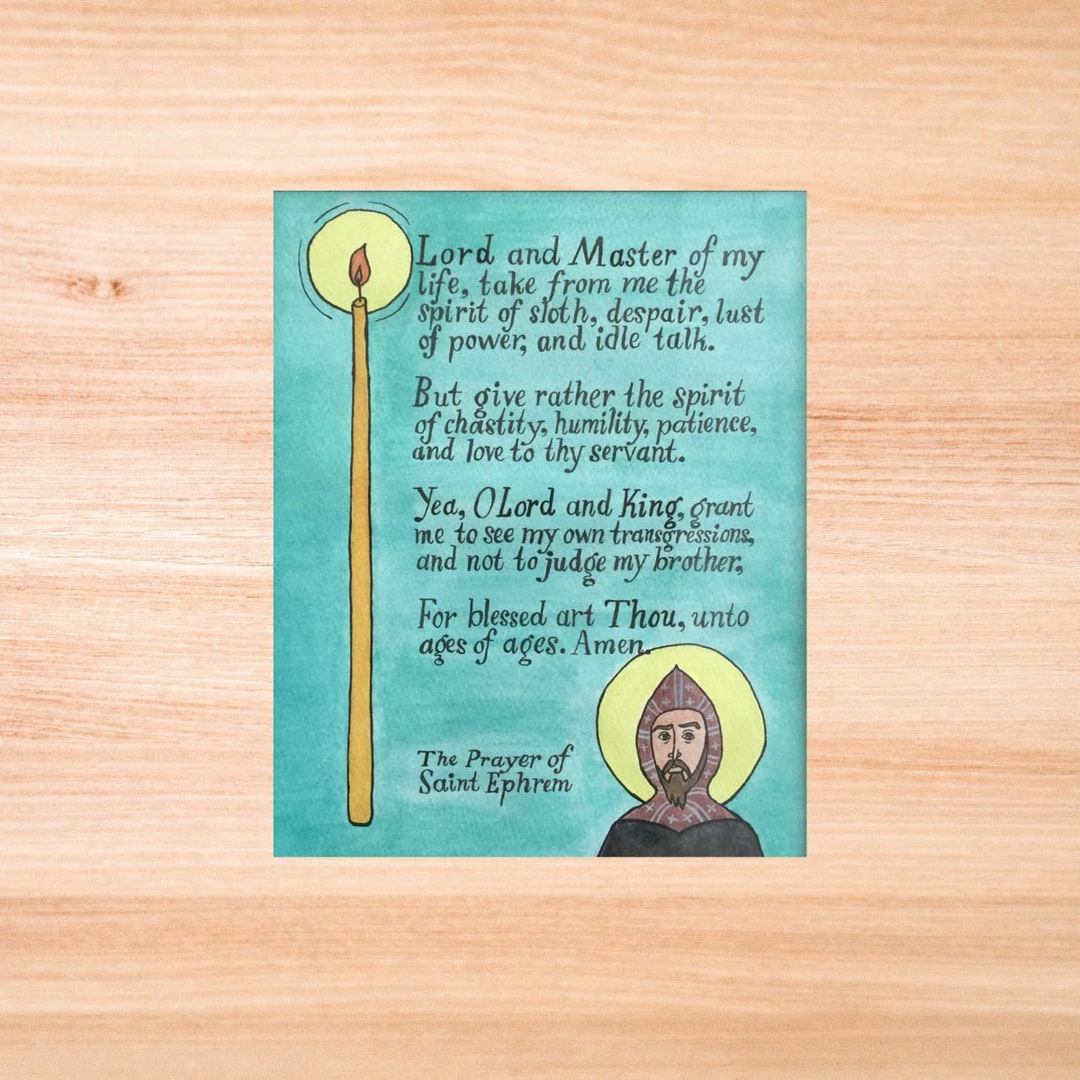 Lord and Master of my
life, take from me the
spirit of sloth, despair, lust
of power, and idle talk.
But give rather the spirit
of chastity, humility, patience,
and love to thy servant.
Yea, O Lord and King, grant
me to see my own transgressions,
and not to judge my brother,
For blessed art Thou, unto
ages of ages. Amen.
The Prayer of
Saint Ephrem